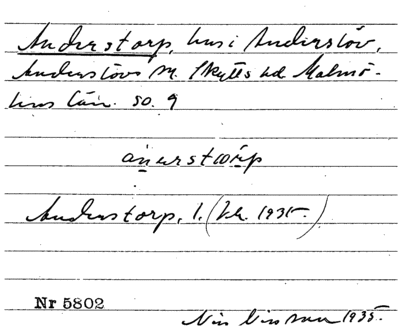 Anderstorp, hus i Anderslöv,
Anderslövs sn. Skytts hd Malmö-
hus län. so. 9
anerstorp
Anderstorp, 1. (kh. 1935.)
Nr 5802
Nils Nilsson 1935.